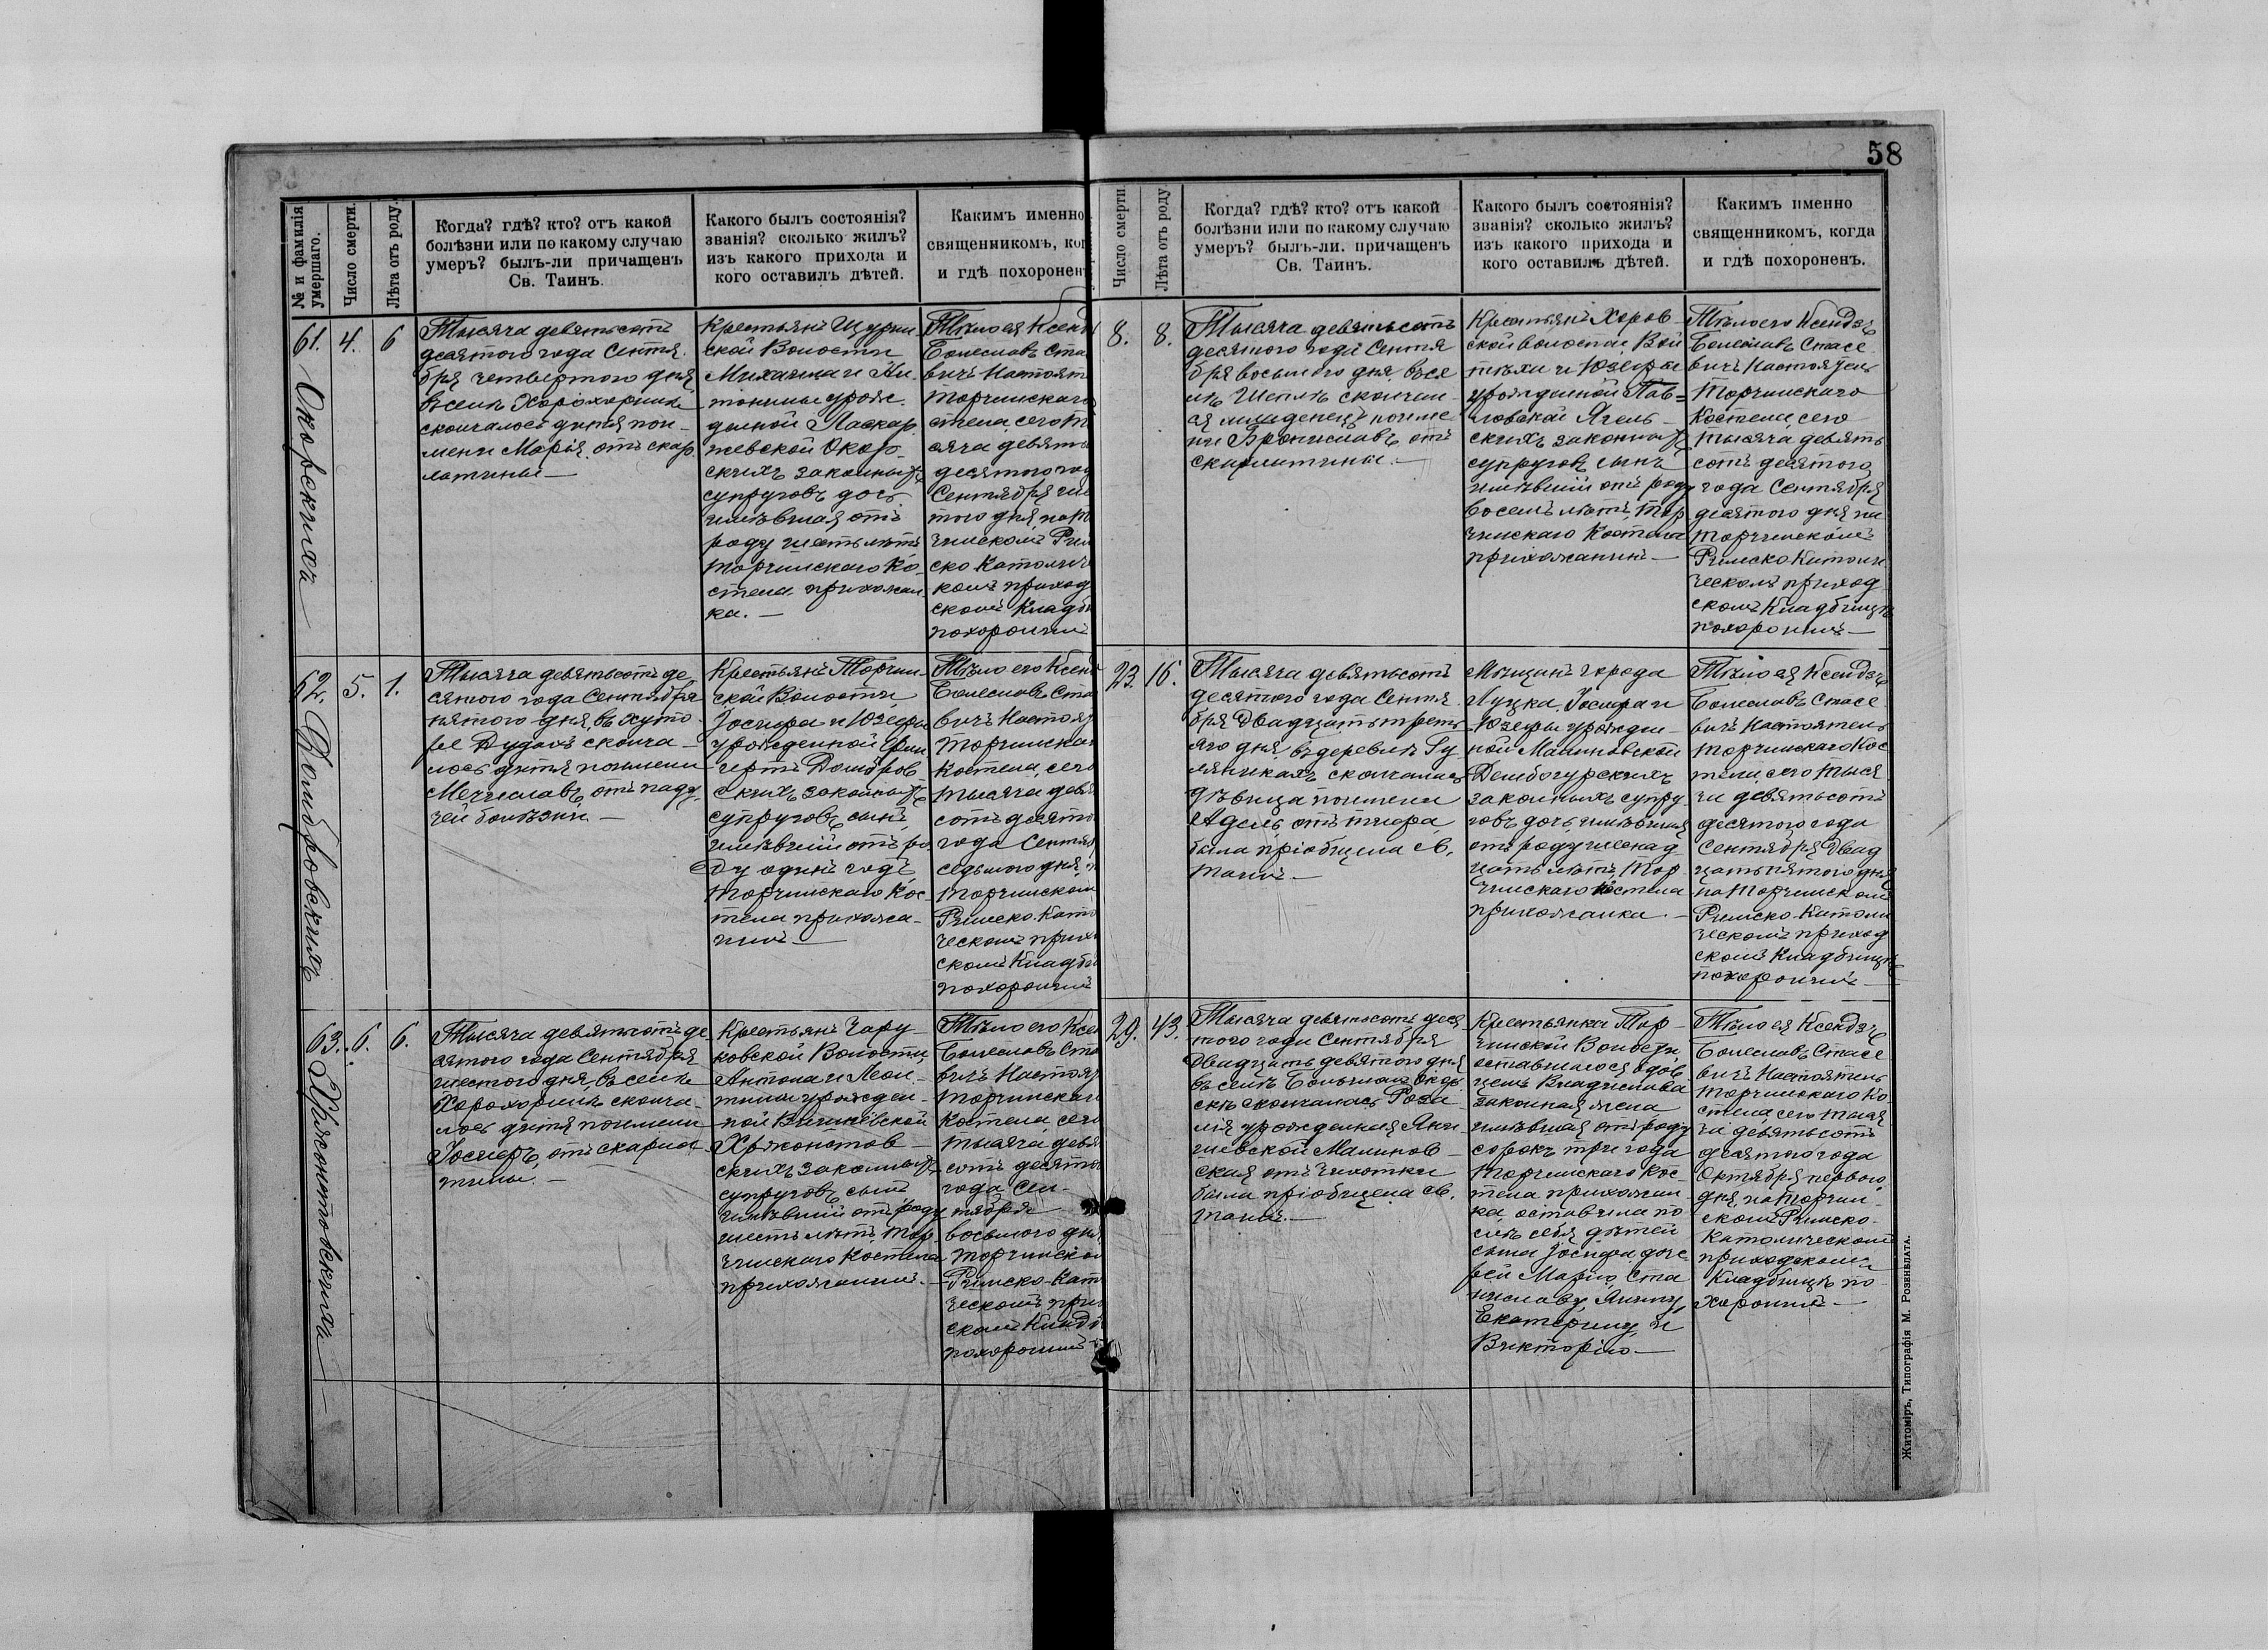 58
№ и фамилія
умершаго.
Число смерти.
Лѣта отъ роду.
Когда? гдѣ? кто? отъ какой
болѣзни или по какому случаю
умеръ? былъ-ли причащенъ
Св. Таинъ.
Какого былъ состоянія?
званія? сколько жилъ?
изъ какого прихода и
кого оставилъ дѣтей.
Какимъ именно
священникомъ, ког
и гдѣ похоронен
61.
Окорскихъ
4.
6
Тысяча девятьсотъ
десятого года Сентя
бря четвертого дня
въ селѣ Хорохоринѣ
скончалось дитя по и
мени Марія, отъ скар
латины —
Крестьянъ Щурин
ской Волости
Михаила и Ан
тонины урож
денной Маскар
жевской Окор
скихъ законныхъ
супруговъ дочь
имѣвшая отъ
роду шесть лѣтъ
Торчинскаго Ко
стела прихожан
ка. —
Тѣло ея Ксенд
Болеславъ Ста
вичъ Настоят
Торчинскаго
стела, сего т
сяча девять
десятого год
Сентября ше
того дня, на т
чинскомъ Рим
ско Католич
комъ приход
скомъ Кладби
похоронилъ
62.
Домбровскихъ
5.
1.
Тысяча девятьсотъ де
сятого года Сентября
пятого дня, въ хуто
рѣ Дудахъ сконча
лось дитя по имени
Мечиславъ, отъ паду
чей болѣзни —
Крестьянъ Торчин
ской Волости,
Іосифа и Юзефы
урожденной
Домбров
скихъ законныхъ
супруговъ сынъ,
имѣвшій отъ ро
ду одинъ годъ,
Торчинскаго Кос
тела прихожа
нинъ —
Тѣло его Ксен
Болеславъ Ста
вичъ Настоя
Торчинска
Костела, сего
тысяча девя
сотъ десято
года Сентяб
седьмого дня,
Торчинском
Римско-Като
ческомъ прих
скомъ Кладби
похоронилъ
63.
Хржонстовскихъ
6.
6.
Тысяча девятьсотъ де
сятого года Сентября
шестого дня, въ селѣ
Хорохоринѣ сконча
лось дитя по имени
Іосифъ, отъ скарла
тины. —
Крестьянъ Чару
ковской Волости,
Антона и Леон
тины урожден
ной Вишневской
Хржонстов
скихъ законныхъ
супруговъ сынъ
имѣвшій отъ роду
шесть лѣтъ, Тор
чинскаго Костела
прихожанинъ. —
Тѣло его Ксен
Болеславъ Ста
вичъ Настоя
Торчинскаг
Костела, сего
тысяча девя
сотъ десято
года Сен
тября
восьмого дня,
Торчинско
Римско-Кат
ческомъ при
скомъ Кладб
похоронилъ
Число смерти.
Лѣта отъ роду
Когда? гдѣ? кто? отъ какой
болѣзни или по какому случаю
умеръ? былъ-ли. причащенъ
Св. Таинъ.
Какого былъ состоянія?
званія? сколько жилъ?
изъ какого прихода и
кого оставилъ дѣтей.
Какимъ именно
священникомъ, когда
и гдѣ похороненъ.
8.
8.
Тысяча девятьсотъ
десятого года Сентя
бря восьмого дня, въ се
лѣ Шеплѣ скончал
ся младенецъ по име
ни Брониславъ, отъ
скарлатины. —
Крестьянъ Хоров
ской волости Вой
тѣха и Юзефы
урожденной Пав
ловской
скихъ законныхъ
супруговъ сынъ
имѣвшій отъ роду
восемь лѣтъ, Тор
чинскаго Костела
прихожанинъ —
Тѣло его Ксендзъ
Болеславъ Стасе
вичъ Настоятель
Торчинскаго
Костела, сего
тысяча девять
сотъ десятого
года Сентября
десятого дня на
Торчинскомъ
Римско Католи
ческомъ приход
скомъ Кладбищѣ
похоронилъ —
23.
16.
Тысяча девятьсотъ
десятого года Сентя
бря двадцать треть
яго дня, въ деревнѣ Гу
лянникахъ скончалась
дѣвица по имени
Адель, отъ тифа,
была пріобщена Св.
Таинъ. —
Мѣщанъ города
Луцка, Іосифа и
Юзефы урожден
ной Малиновской
Дембогурскихъ
законныхъ супру
говъ дочь, имѣвшая
отъ роду шестнад
цать лѣтъ, Тор
чинскаго Костела
прихожанка. —
Тѣло ея Ксендзъ
Болеславъ Стасе
вичъ Настоятель
Торчинскаго Кос
тела, сего тыся
ча девятьсотъ
десятого года
Сентября двад
цать пятого дня
на Торчинскомъ
Римско-Католи
ческомъ приход
скомъ Кладбищѣ
похоронилъ —
29.
43.
Тысяча девятьсотъ деся
того года Сентября
двадцать девятого дня
въ селѣ Большомъ
скончалась Роза
лія урожденная Яни
шевской Малинов
ская отъ чахотки
была пріобщена Св.
Таинъ. —
Крестьянка Тор
чинской Волости,
оставшагося вдов
цемъ Владислава
законная жена
имѣвшая отъ роду
сорокъ три года
Торчинскаго Кос
тела прихожан
ка, оставила по
слѣ себя дѣтей
сына Іосифа доче
рей Марію, Ста
ниславу, Анну,
Екатерину и
Викторію —
Тѣло ея Ксендзъ
Болеславъ Стасе
вичъ Настоятель
Торчинскаго Ко
стела, сего тыся
ча девятьсотъ
десятого года
Октября первого
дня, на Торчин
скомъ Римско-
Католическомъ
приходскомъ
Кладбищѣ по
хоронилъ —
Житоміръ, Типографія М. Розенблата.